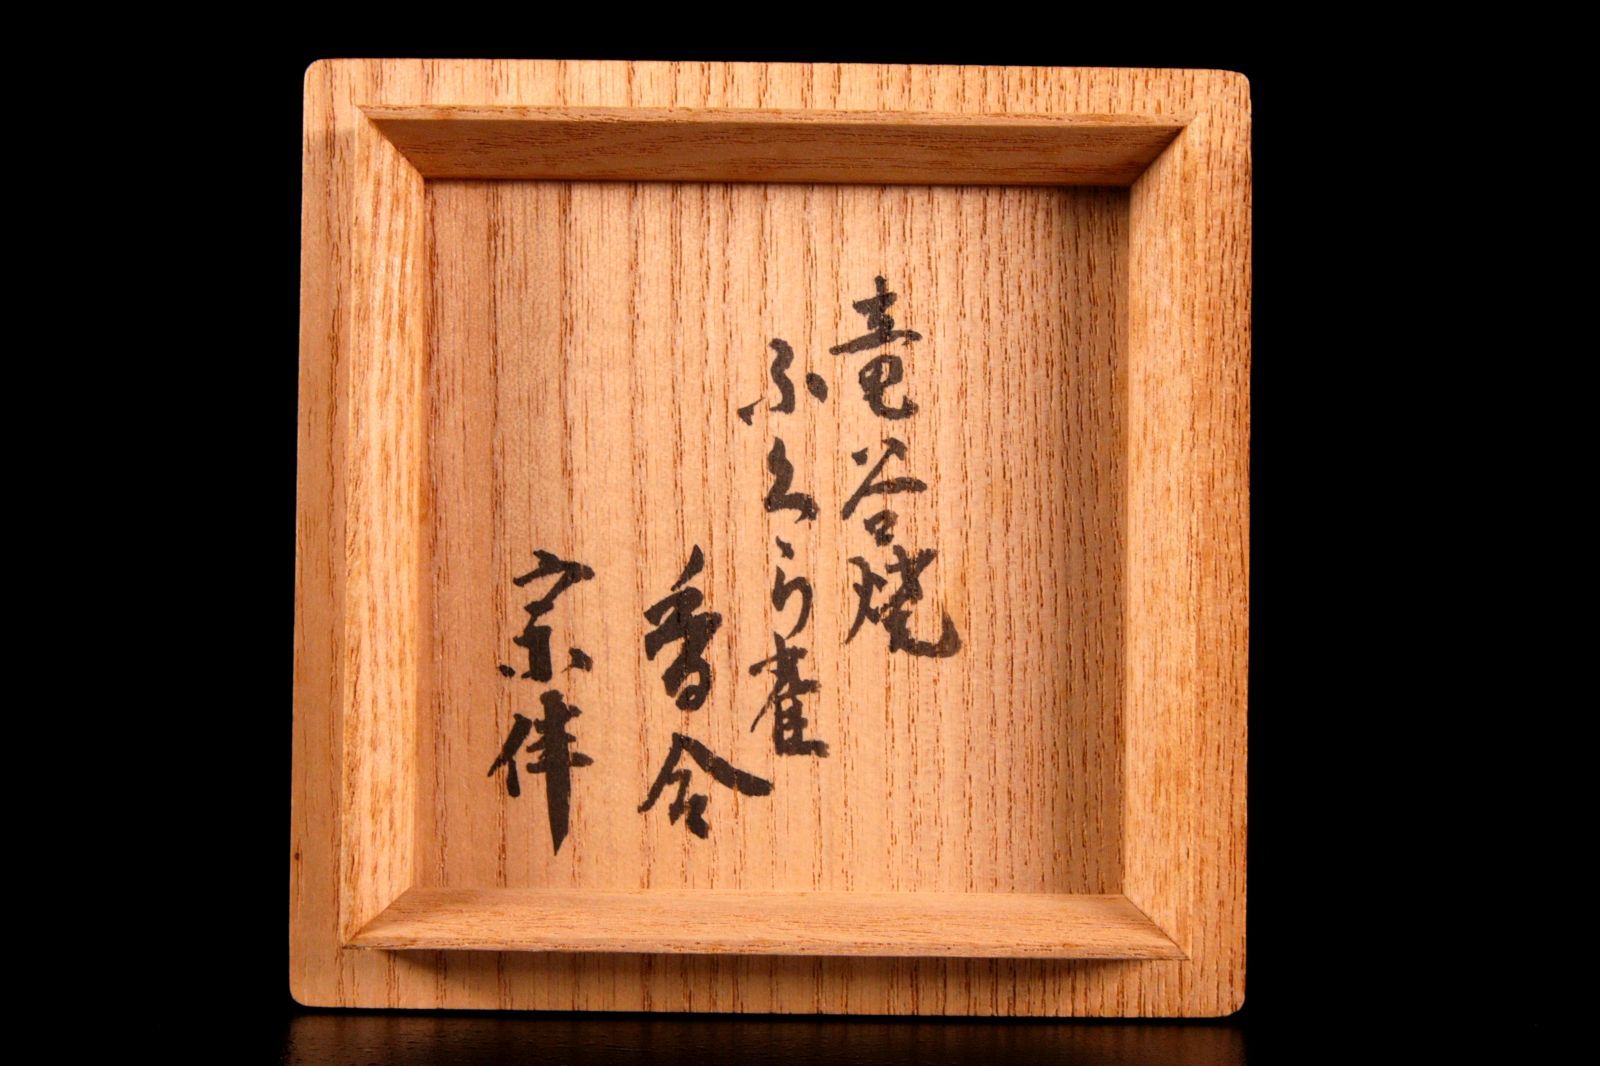 竜谷焼
ふくら雀
香合
宗伴